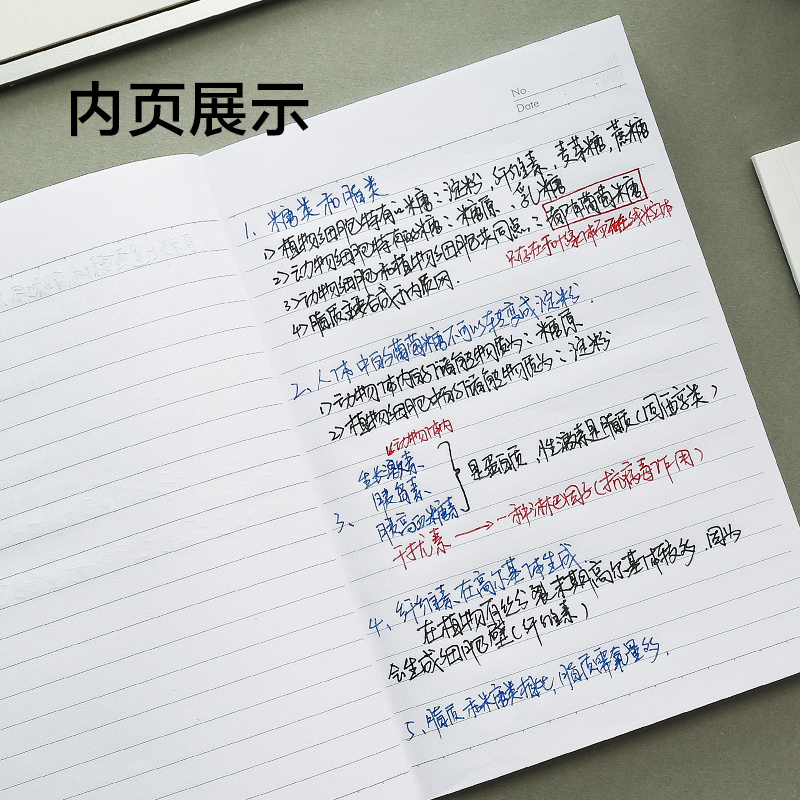 内页展示
No.
Date
1. 糖类和脂类
1) 植物细胞特有的糖：淀粉，纤维素，麦芽糖，蔗糖
2) 动物细胞特有的糖：糖原、乳糖
3) 动物细胞和植物细胞共同点：都有葡萄糖
只存在于叶绿体而不在线粒体
4) 脂质主要合成于内质网.
2、人体中的葡萄糖不可以转变成淀粉.
1) 动物体内的储能物质为：糖原
2) 植物细胞内的储能物质为：淀粉
动物体内
3、生长激素、
胰岛素、
胰高血糖素
是蛋白质，性激素是脂质(固醇类)
干扰素 → 一种淋巴因子(抗病毒作用)
4、纤维素、在高尔基体生成
在植物有丝分裂末期高尔基体较多.因为
会生成细胞壁(纤维素)
5、脂质和糖类相比，脂质需氧量多.